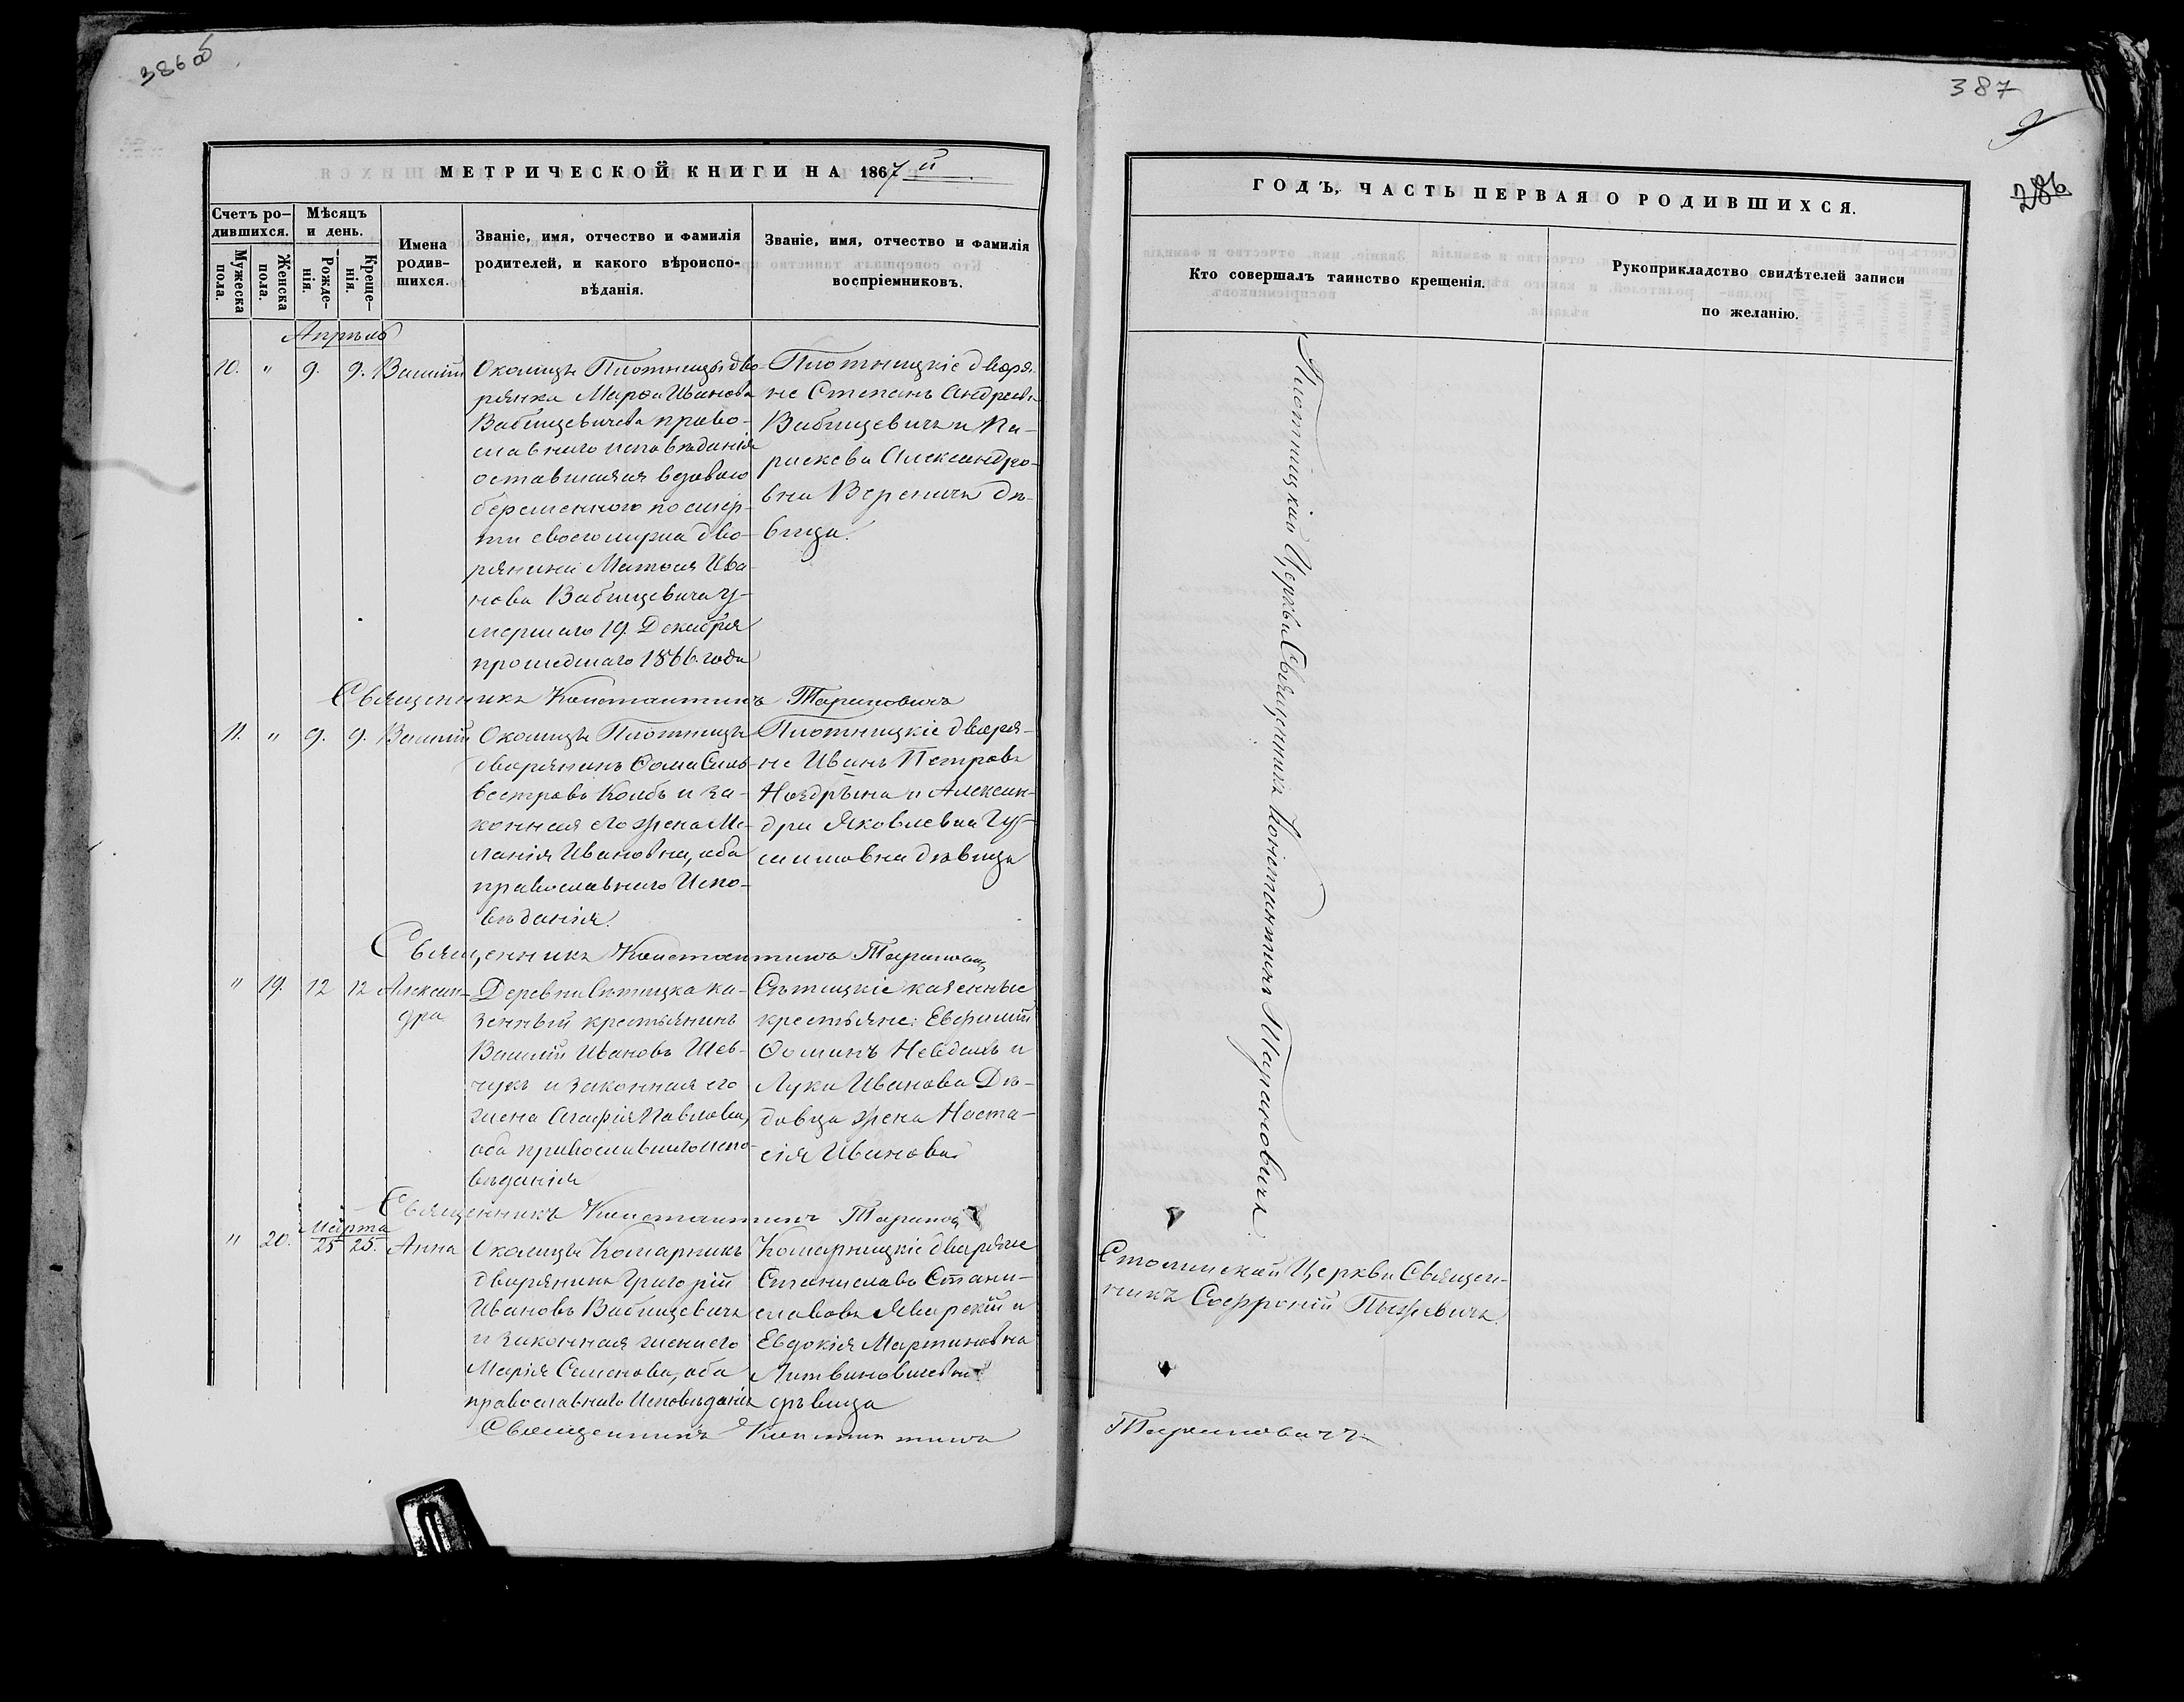 386 об
МЕТРИЧЕСКОЙ КНИГИ НА 1867 й
Счетъ ро-
дившихся.
Мѣсяцъ
и день.
Мужеска
пола.
Женска
пола.
Рожде-
нія.
Креще-
нія.
Имена
родив-
шихся.
Званіе, имя, отчество и фамилія
родителей, и какого вѣроиспо-
вѣданія.
Званіе, имя, отчество и фамилія
воспріемниковъ.
Апрѣль
10. " 9. 9. Василій
Околицы Плотницы дво-
рянка Марѳа Иванова
Вабищевичева право-
славнаго исповѣданія
оставшаяся вдовою
беременною по смер-
ти своего мужа дво-
рянина Матѳея Ива-
нова Вабищевича у-
мершаго 19. Декабря
прошедшаго 1866. года
Плотницкіе дворя-
не Степанъ Андреевъ
Вабищевичъ и Па-
раскева Александро-
вна Вереничъ дѣ-
вица.
Священникъ Константинъ Тарановичъ
11. " 9. 9. Василій
Околицы Плотницы
дворянинъ Ѳома Силь-
вестровъ Колбъ и за-
конная его жена Ме-
ланія Ивановна, оба
православнаго Испо-
вѣданія.
Плотницкіе дворя-
не Иванъ Петровъ
Ноздрына и Алексан-
дра Яковлевна
дѣвица
Священникъ Константинъ Тарановичъ
" 19. 12 12 Алексан-
дра
Деревни Сѣтицка ка-
зенный крестьянинъ
Василій Ивановъ Шев-
чукъ и законная его
жена Агафія Павлова,
оба православнаго испо-
вѣданія
Сѣтицкіе казенные
крестьяне: Евфимій
Ѳоминъ Невдахъ и
Луки Иванова Дѣ-
довца жена Наста-
сія Иванова
Священникъ Константинъ Таранов
Марта
" 20. 25 25. Анна
Околицы Комарникъ
дворянинъ Григорій
Ивановъ Вабищевичъ
и законная жена его
Марія Семенова, оба
православнаго Исповѣданія
Комарницкіе дворяне
Станиславъ Стани-
славовъ Яварскій и
Евдокія Мартиновна
Литвиновичевна
дѣвица
Священникъ Константинъ
387
286
ГОДЪ, ЧАСТЬ ПЕРВАЯ О РОДИВШИХСЯ.
Кто совершалъ таинство крещенія.
Рукоприкладство свидѣтелей записи
по желанію.
Плотницкой Церкви Священникъ Константинъ Тарановичъ.
Столинской Церкви Священ-
никъ Софроній Пыжевичъ.
Тарановичъ